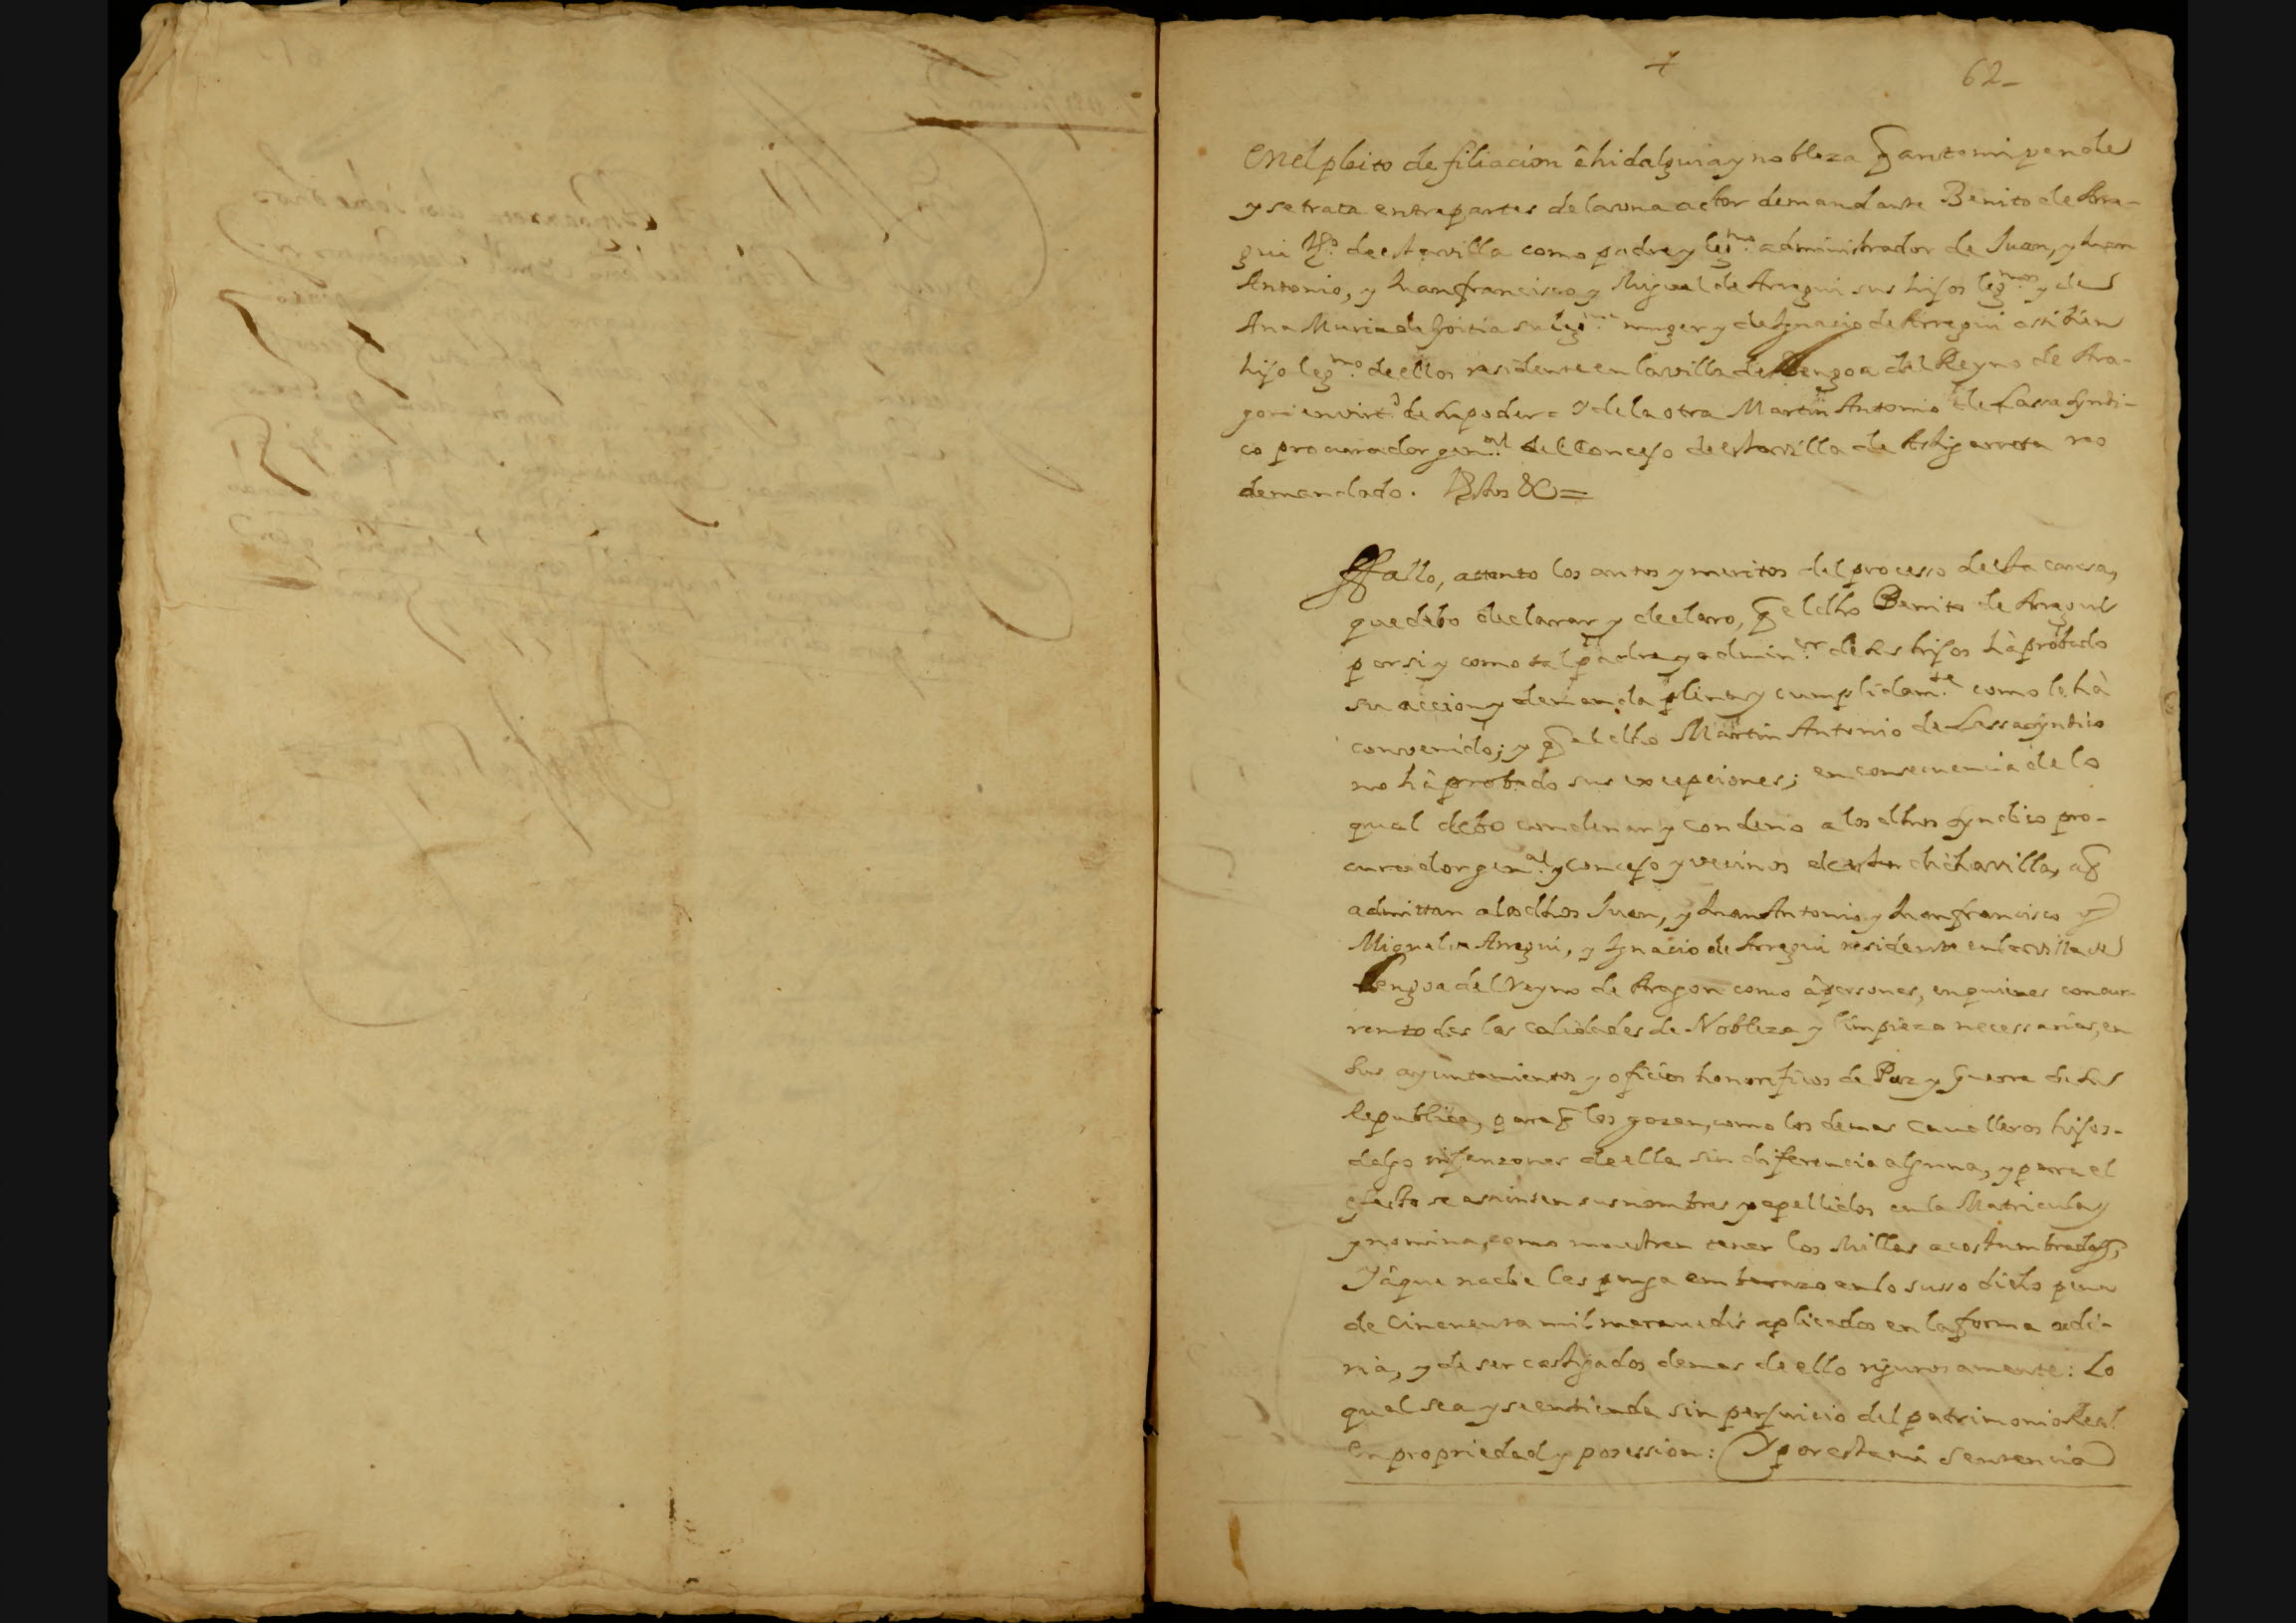 62_
En el pleito de filiacion é hidalguia y nobleza q̃ ante mi pende
y se trata entre partes de la una actor demandante Benito de Arre-
gui Vº. de esta villa como padre y legmo. administrador de Juan, y Juan
Antonio, y Juan francisco y Miguel de Arregui sus hijos legmos. y de
Ana Maria de Goitia su legma. muger y de Ignacio de Arregui assi bien
hijo legmo. de ellos residente en la villa de Bengoa del Reyno de Ara-
gon en virtd de su poder = Y de la otra Martin Antonio de Lassa syndi-
co procurador genal. del Concejo de esta villa de Astigarreta reo
demandado. Vistos &=
Fallo, attento los autos y meritos del processo de esta causa,
que debo declarar y declaro, q̃ el dho Benito de Arregui
por si y como tal padre y adminor. de sus hijos hà probado
su accion y demanda plena y cumplidamte. como le hà
convenido; y q̃ el dho Martin Antonio de Lassa syndico
no hà probado sus excepciones; en consecuencia de lo
qual debo condenar y condeno a los dhos syndico pro-
curador genal. y concejo y vecinos de esta dicha villa, a q̃
admittan a los dhos Juan, y Juan Antonio y Juan francisco y
Miguel de Arregui, y Ignacio de Arregui residente en la villa de
Bengoa del Reyno de Aragon como à personas, en quienes concur-
ren todas las calidades de Nobleza y limpieza necessarias, en
sus ayuntamientos y oficios honorificos de Paz y guerra de su
Republica, para q̃ los gozen, como los demas cavalleros hijos-
dalgo infanzones de ella sin diferencia alguna, y para el
efecto se assienten sus nombres y apellidos en la Matricula y
y nomina, como muestren tener los Millares acostumbrados,
Y à que nadie les ponga embarazo en lo susso dicho pena
de cincuenta mil maravedis aplicados en la forma ordi-
ria, y de ser castigados demas de ello rigurosamente: Lo
qual sea y se entienda sin perjuicio del patrimonio Real
en propriedad y possession: Y por esta mi sentencia